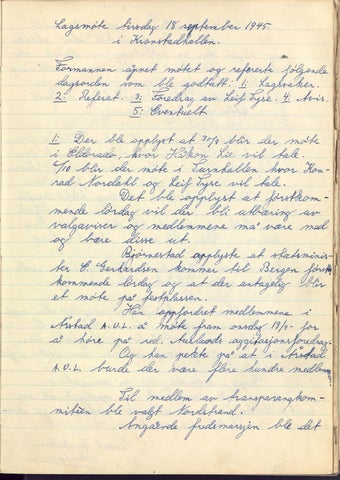 Lagsmöte tirsdag 18 september 1945.
i Kronstadhallen.
Formannen åpnet møtet og refererte følgende
dagsorden som ble godtatt: 1: Lagssaker.
2: Referat. 3: Foredrag av Leif Tyse. 4: Avis.
5: Eventuelt
1: Der ble opplyst at 30/9 blir der møte
i Eldorado, hvor Håkon Lie vil tale.
6/10 blir der møte i Turnhallen hvor Kon-
rad Nordahl og Leif Tyse vil tale.
Det ble opplyst at førstkom-
mende lördag vil der bli utbæring av
valgaviser og medlemmene må være med
og bære disse ut.
Bjørnestad opplyste at statsminis-
ter E. Gerhardsen kommer til Bergen først-
kommende lördag og at der antagelig blir
et møte på festplassen.
Han oppfordret medlemmene i
Årstad A.U.L. å møte fram onsdag 19/9 for
å høre på red. Aarlands aggitasjonsforedrag.
Og han pekte på at i Årstad
A.U.L. burde der være flere hundre medlem
Til medlem av transparangkom-
mitéen ble valgt Nordstrand.
Angående fredsmarsjen ble det